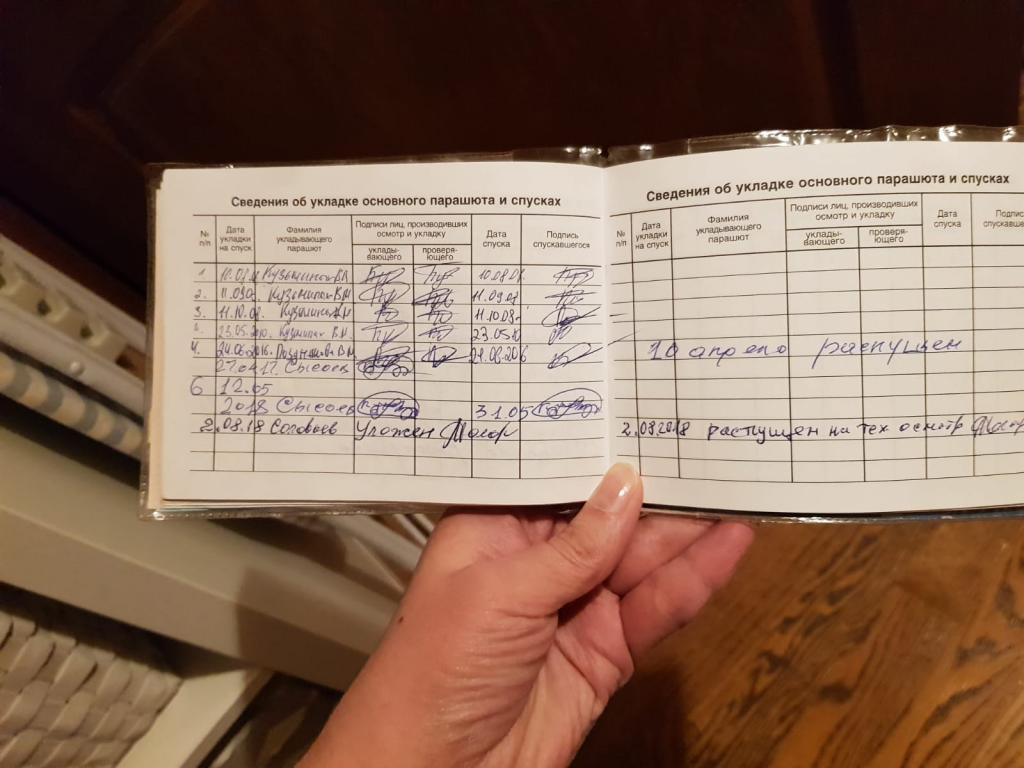 Сведения об укладке основного парашюта и спусках
№ п/п
Дата укладки на спуск
Фамилия укладывающего парашют
Подписи лиц, производивших осмотр и укладку
уклады-вающего
проверя-ющего
Дата спуска
Подпись спускавшегося
1. Кузьминых В.М 10.08.08
2. 11.09.08. Кузьминых В.М 11.09.08
3. 11.10.08. Кузьминых В.М 11.10.08
23.05.2010. Кузьминых В.М. 23.05.10
4. 24.06.2016.
27.04.17. Сысоев
6 12.05
2018 Сысоев 31.05
2.08.18 Соловьев Уложен
Сведения об укладке основного парашюта и спусках
№ п/п
Дата укладки на спуск
Фамилия укладывающего парашют
Подписи лиц, производивших осмотр и укладку
уклады-вающего
проверя-ющего
Дата спуска
Подпи
спускавше
10 апреля распущен
2.08.2018 распущен на тех осмотр